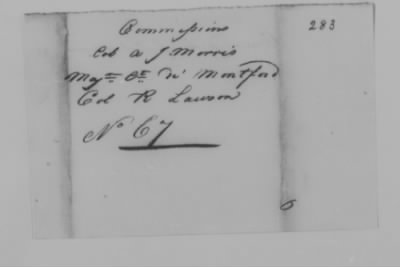 Commissions
Col A J Morris
Majr Ct de Montford
Col R Lawson
No 67
283